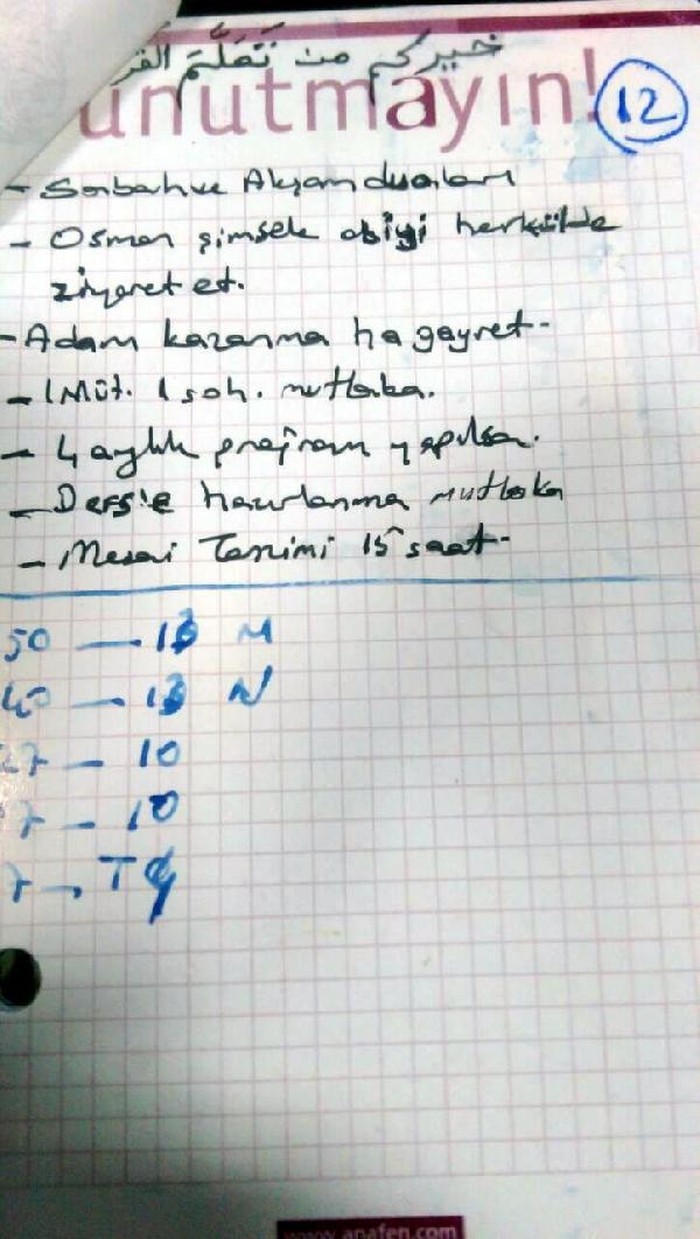 خيركم من تَعَلَّمَ القر
unutmayın!
12
- Sabah ve Akşam duaları
- Osman şimşek abiyi herkülde
ziyaret et.
- Adam kazanma ha gayret-
- 1 Müt. 1 soh. mutlaka.
- 4 aylık program yapılsa.
- Ders'e hazırlanma mutlaka
- Mesai Tanzimi 15 saat-
50 — 13 M
40 — 13 N
27 — 10
7 — 10
7 —
www.anafen.com